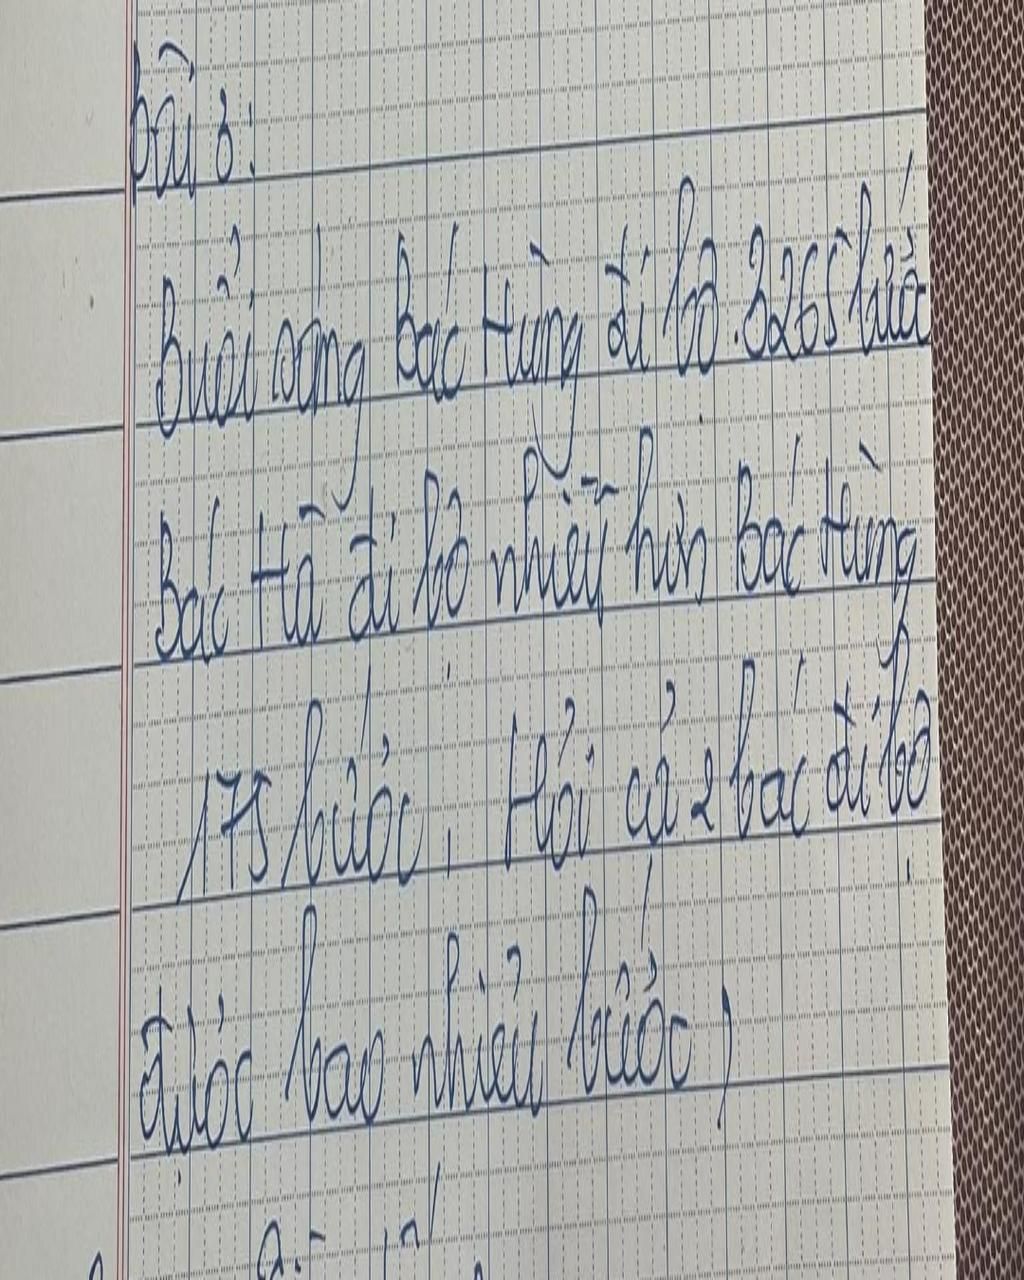 Bài 3:
Buổi sáng Bác Hùng đi bộ 3265 bước
Bác Hà đi bộ nhiều hơn Bác Hùng
175 bước. Hỏi cả 2 bác đi bộ
được bao nhiêu bước,